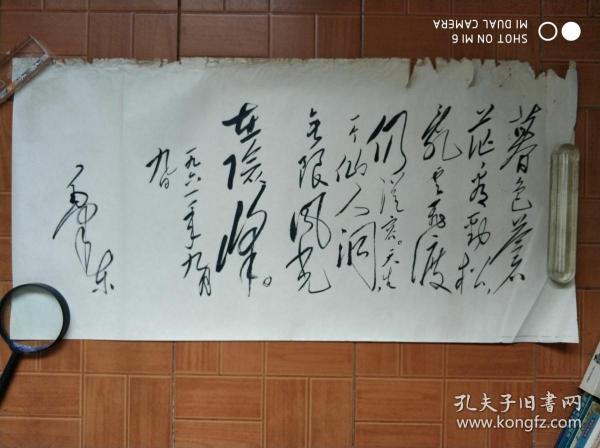 暮色蒼
茫看勁松,
亂云飛渡
仍從容。天生
一个仙人洞,
无限風光
在險峰。
一九六一年九月
九日
毛澤東
SHOT ON MI 6
MI DUAL CAMERA
孔夫子旧书网
www.kongfz.com